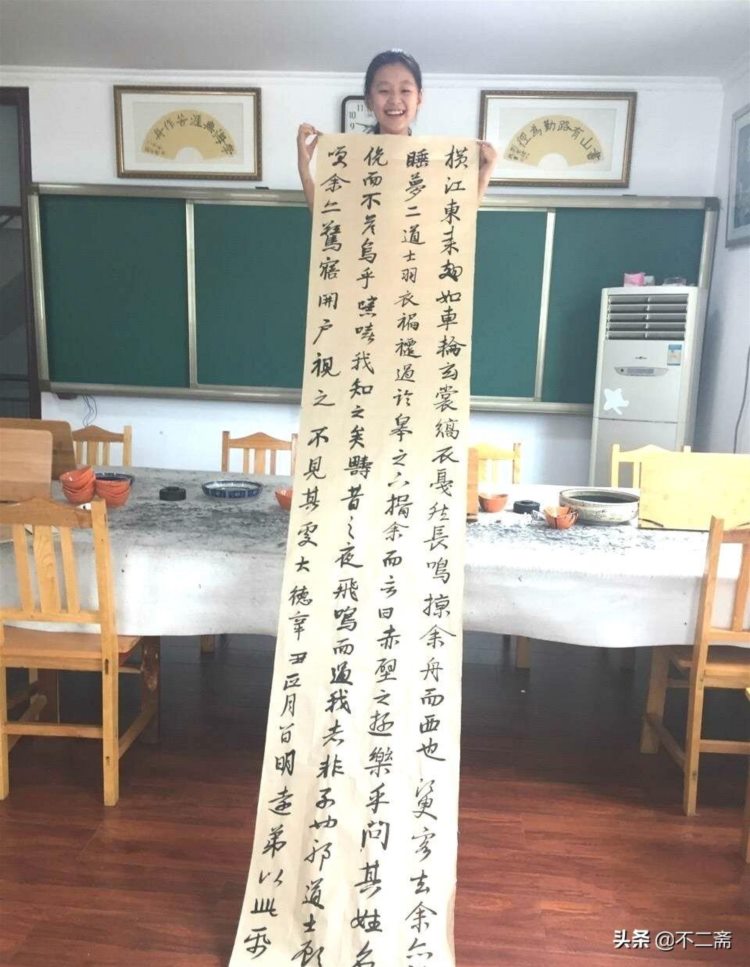 學海無涯苦作舟
書山有路勤為徑
11
10
9
横江東来翅如車輪玄裳縞衣戛然長鳴掠余舟而西也須臾客去余亦就
睡夢二道士羽衣褊褼過於皋之下揖余而言曰赤壁之遊樂乎問其姓名
俛而不答烏乎噫嘻我知之矣疇昔之夜飛鳴而過我者非子也邪道士顧
笑余亦驚寤開户視之不見其處大德辛丑正月八日明遠弟以此帋
头条 @不二斋